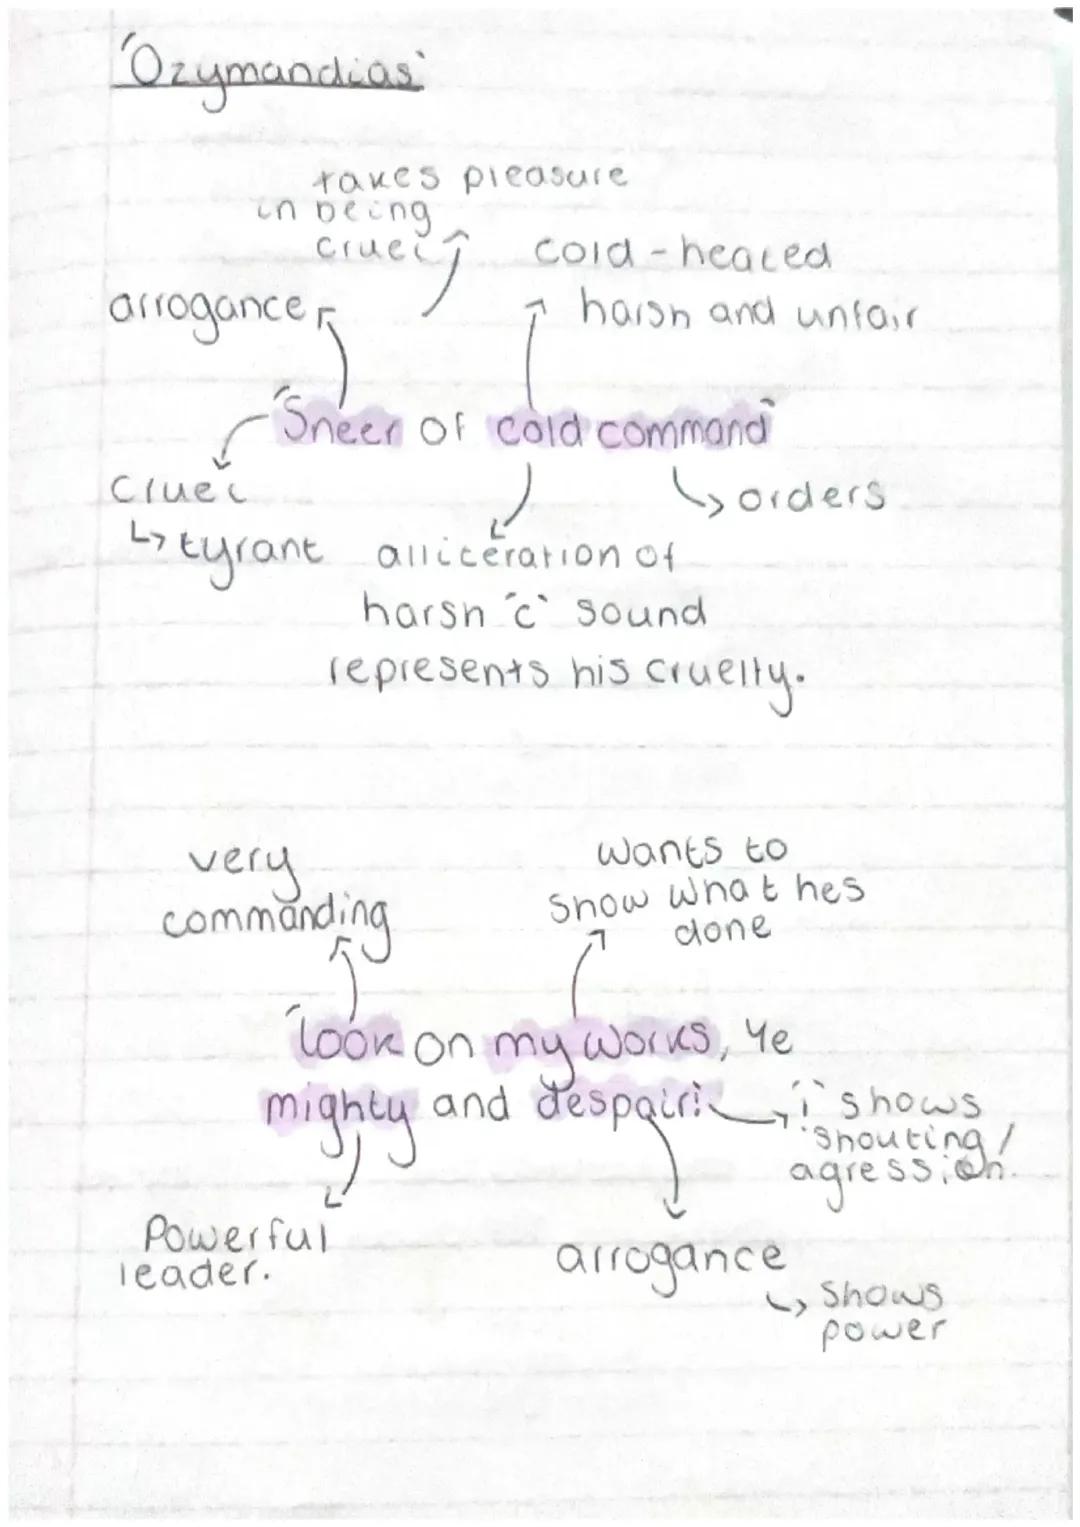 'Ozymandias'
takes pleasure
in being
cruel
cold-heated
arrogance
harsh and unfair
"Sneer of cold command"
cruel
orders
↳ tyrant
alliteration of
harsh 'c' sound
represents his cruelty.
very
commanding
wants to
show what hes
done
"look on my works, Ye
mighty and despair!
'!' shows
shouting/
agression.
Powerful
leader.
arrogance
↳ shows
power